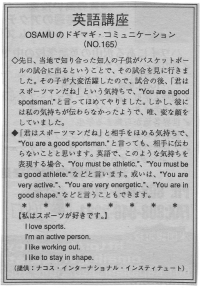 英語講座
OSAMUのドギマギ・コミュニケーション
(NO.165)
◇先日、当地で知り合った知人の子供がバスケットボー
ルの試合に出るということで、その試合を見に行きま
した。その子が大変活躍したので、試合の後、「君は
スポーツマンだね」という気持ちで、"You are a good
sportsman." と言ってほめてやりました。しかし、彼に
は私の気持ちが伝わらなかったようで、唯、変な顔を
していました。
◆「君はスポーツマンだね」と相手をほめる気持ちで、
"You are a good sportsman." と言っても、相手に伝わ
らないことと思います。英語で、このような気持ちを
表現する場合、"You must be athletic.", "You must be
a good athlete." などと言います。或いは、"You are
very active.", "You are very energetic.", "You are in
good shape." などと言うこともできます。
* * * * * * * *
【私はスポーツが好きです。】
I love sports.
I'm an active person.
I like working out.
I like to stay in shape.
(提供：ナコス・インターナショナル・インスティテュート)